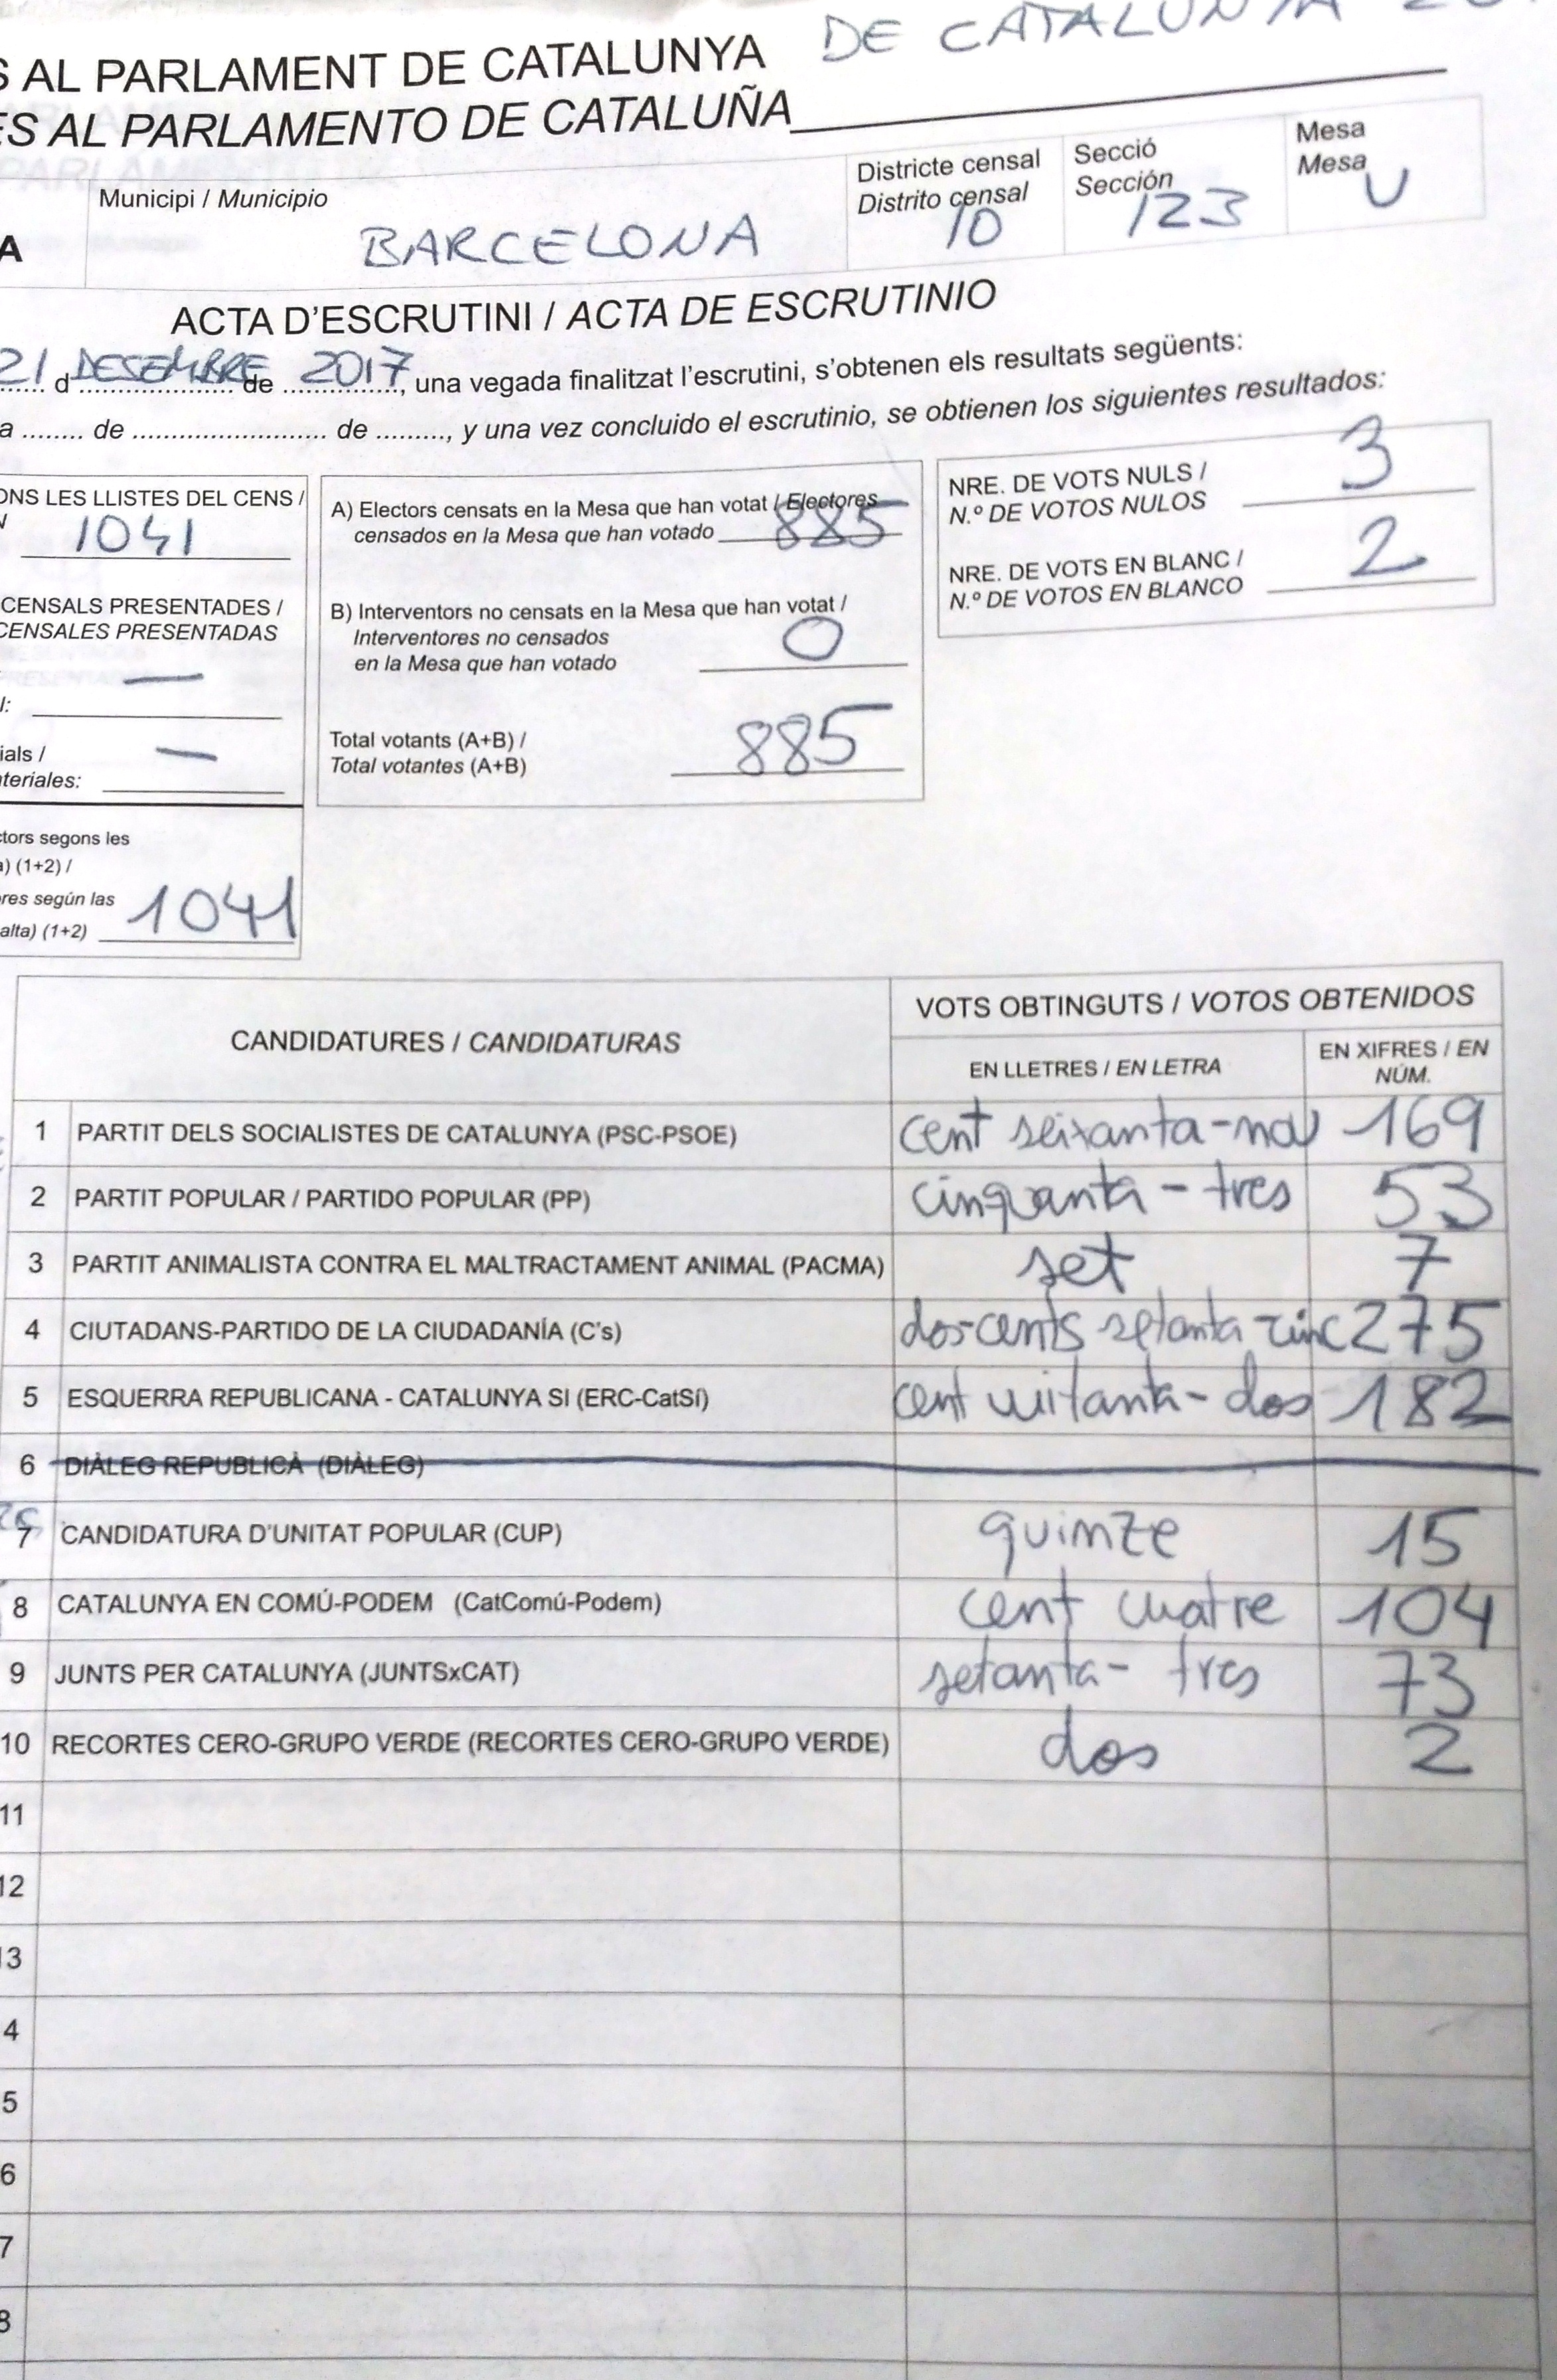 DE CATALUNYA
S AL PARLAMENT DE CATALUNYA
ES AL PARLAMENTO DE CATALUÑA
Municipi / Municipio
BARCELONA
Districte censal
Distrito censal
10
Secció
Sección
123
Mesa
Mesa
U
A
ACTA D'ESCRUTINI / ACTA DE ESCRUTINIO
21 d DESEMBRE de 2017, una vegada finalitzat l'escrutini, s'obtenen els resultats següents:
a ........ de .......................... de ........., y una vez concluido el escrutinio, se obtienen los siguientes resultados:
ONS LES LLISTES DEL CENS /
1041
CENSALS PRESENTADES /
CENSALES PRESENTADAS
—
l:
ials /
—
teriales:
ctors segons les
a) (1+2) /
res según las
alta) (1+2) 1041
A) Electors censats en la Mesa que han votat / Electores
censados en la Mesa que han votado 885
B) Interventors no censats en la Mesa que han votat /
Interventores no censados
en la Mesa que han votado 0
Total votants (A+B) /
Total votantes (A+B) 885
NRE. DE VOTS NULS /
N.º DE VOTOS NULOS 3
NRE. DE VOTS EN BLANC /
N.º DE VOTOS EN BLANCO 2
CANDIDATURES / CANDIDATURAS
VOTS OBTINGUTS / VOTOS OBTENIDOS
EN LLETRES / EN LETRA
EN XIFRES / EN
NÚM.
1 PARTIT DELS SOCIALISTES DE CATALUNYA (PSC-PSOE) cent seixanta-nou 169
2 PARTIT POPULAR / PARTIDO POPULAR (PP) cinquanta-tres 53
3 PARTIT ANIMALISTA CONTRA EL MALTRACTAMENT ANIMAL (PACMA) set 7
4 CIUTADANS-PARTIDO DE LA CIUDADANÍA (C's) dos-cents setanta-cinc 275
5 ESQUERRA REPUBLICANA - CATALUNYA SI (ERC-CatSí) cent vuitanta-dos 182
6 DIÀLEG REPUBLICÀ (DIÀLEG)
7 CANDIDATURA D'UNITAT POPULAR (CUP) quinze 15
8 CATALUNYA EN COMÚ-PODEM (CatComú-Podem) cent cuatre 104
9 JUNTS PER CATALUNYA (JUNTSxCAT) setanta-tres 73
10 RECORTES CERO-GRUPO VERDE (RECORTES CERO-GRUPO VERDE) dos 2
11
12
13
4
5
6
7
8